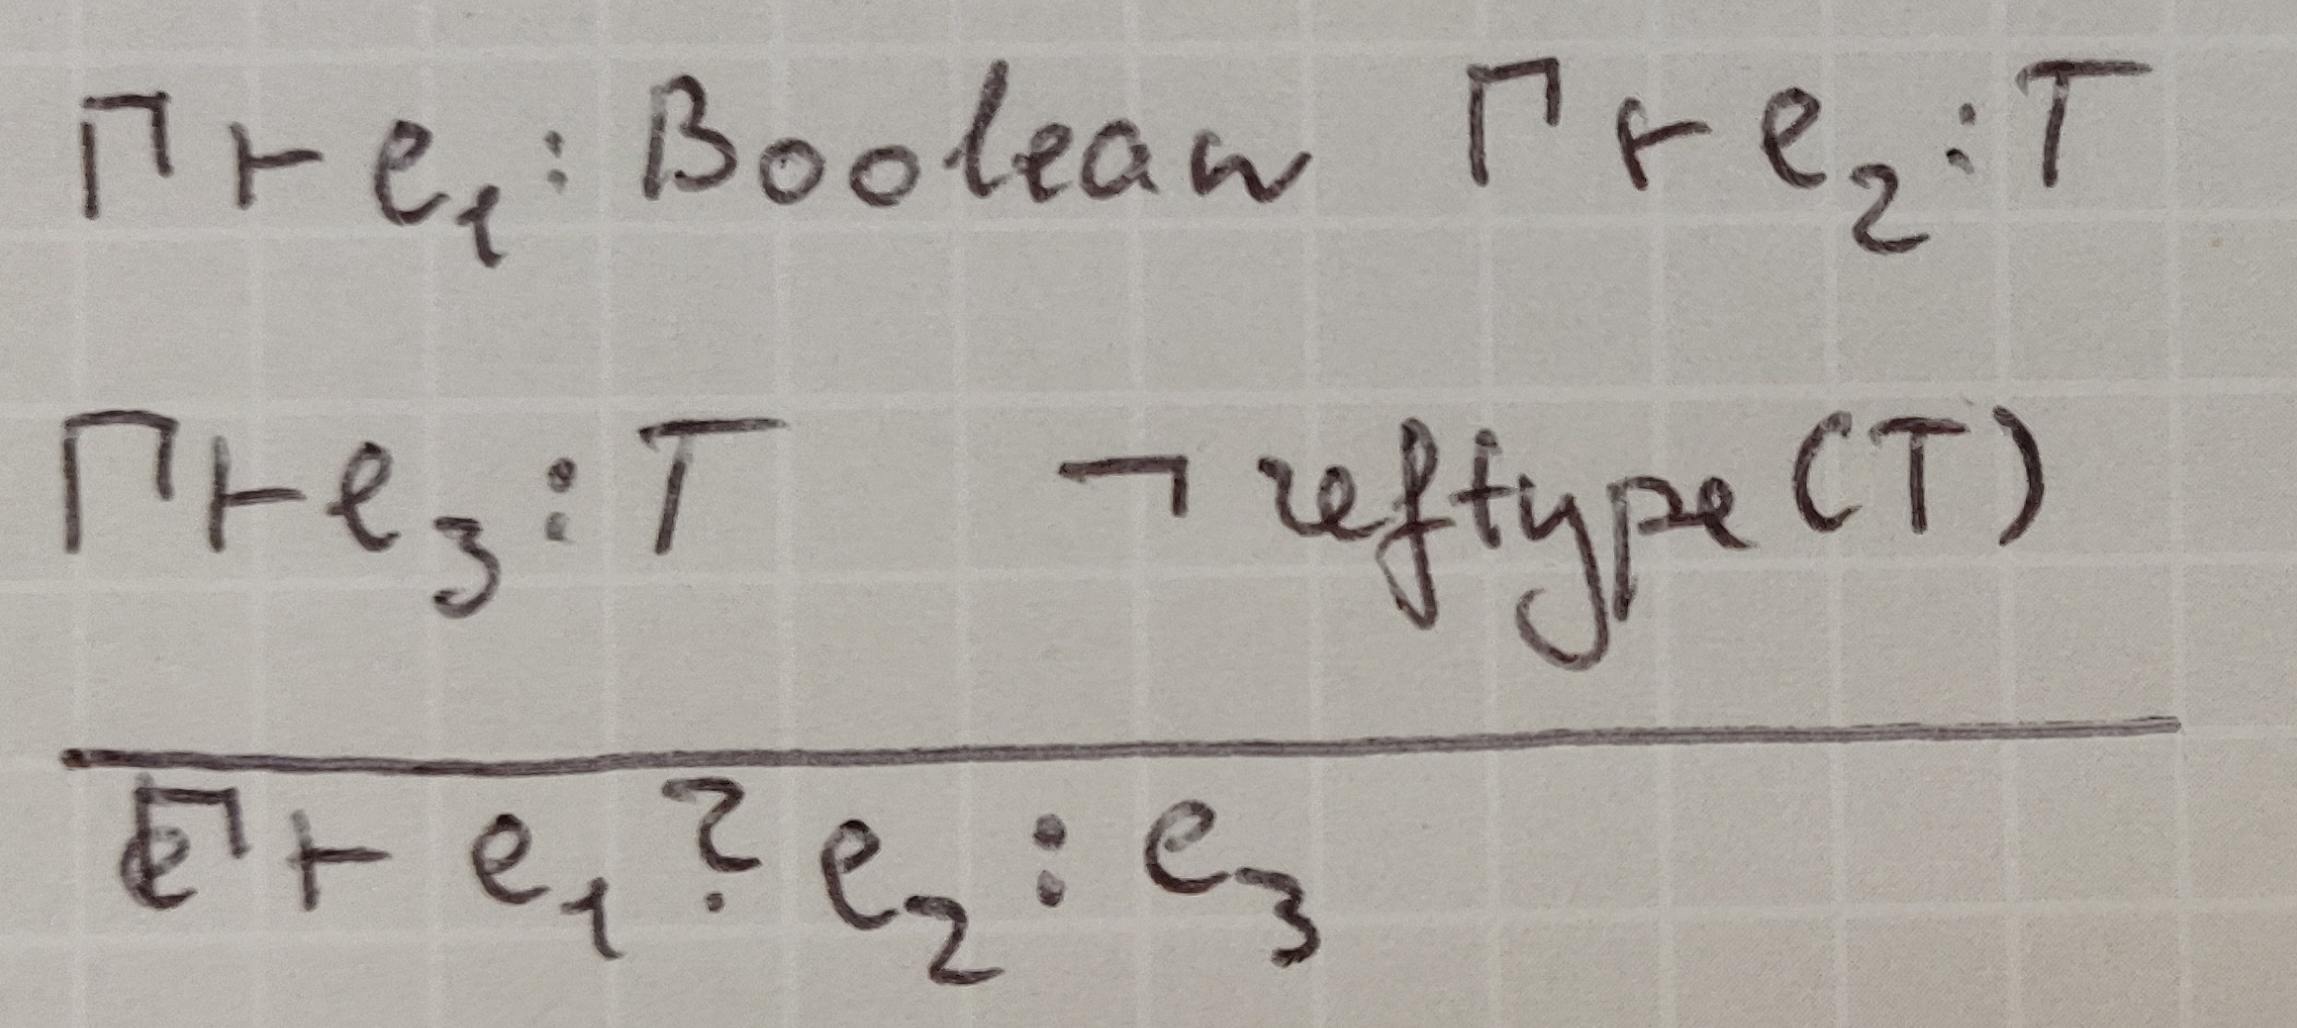 Γ ⊢ e₁ : Boolean Γ ⊢ e₂ : T
Γ ⊢ e₃ : T ¬ reftype (T)
Γ ⊢ e₁ ? e₂ : e₃